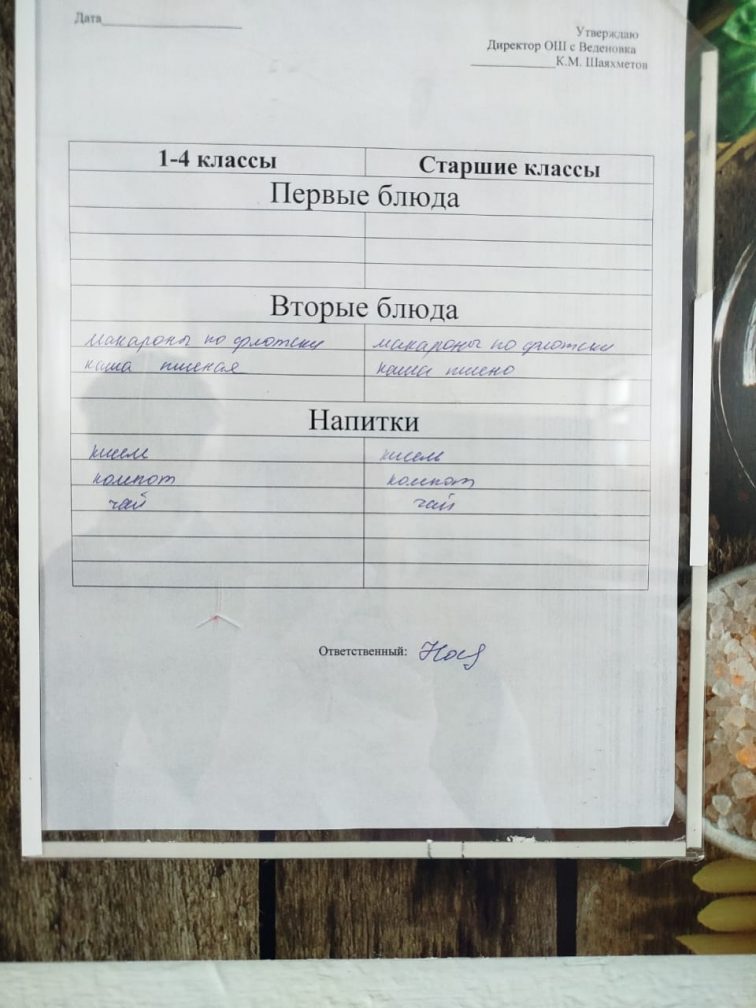 Дата
Утверждаю
Директор ОШ с Веденовка
К.М. Шаяхметов
1-4 классы Старшие классы
Первые блюда
Вторые блюда
макароны по флотски макароны по флотски
каша пшеная каша пшено
Напитки
кисель кисель
компот компот
чай чай
Ответственный: